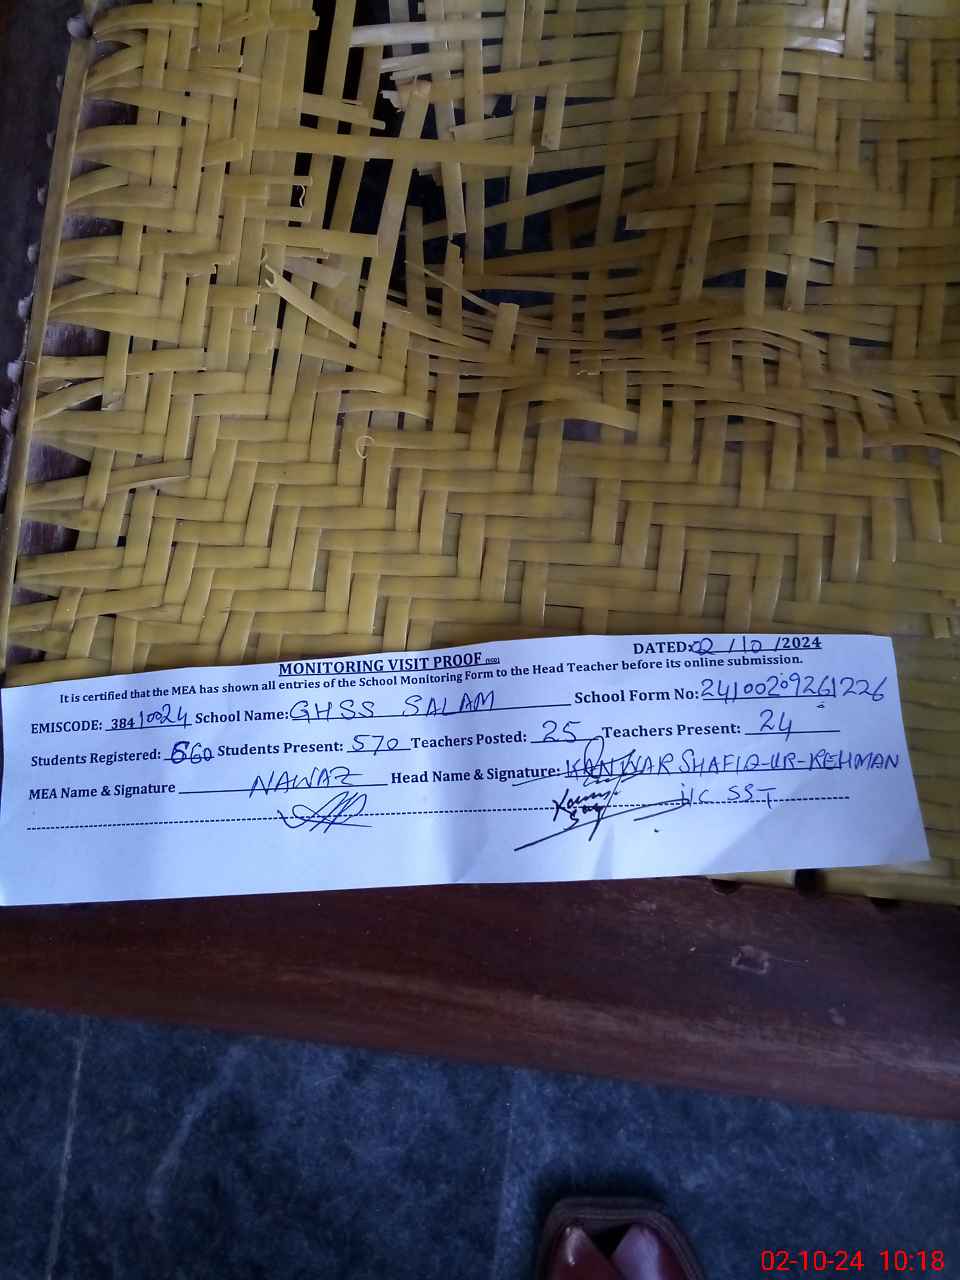 DATED: 02/10/2024
MONITORING VISIT PROOF
It is certified that the MEA has shown all entries of the School Monitoring Form to the Head Teacher before its online submission.
EMISCODE: 38410024 School Name: GHSS SALAM School Form No: 24100209261226
Students Registered: 660 Students Present: 570 Teachers Posted: 25 Teachers Present: 24
MEA Name & Signature NAWAZ Head Name & Signature: KANWAR SHAFIQ-UR-REHMAN
I/C SST
02-10-24 10:18